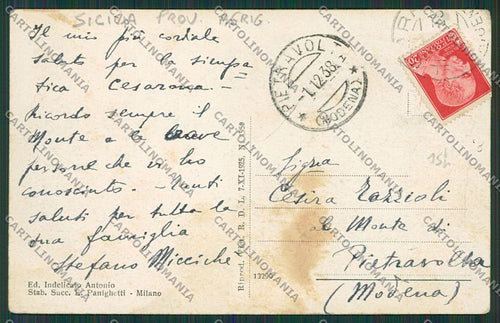 SICILIA PROV. AGRIG.
Il mio più cordiale
saluto per la simpa
tica Cesarona.-
Ricordo sempre il
Monte a le brave
persone che vi ho
conosciuto.- Tanti
saluti per tutta la
sua famiglia
Stefano Miccichè
Ed. Indelicato Antonio
Stab. Succ. E. Panighetti - Milano
Rinced. R. D. L. 7-XI-1925, N.
PIEVAVOL
1.12.38
(MODENA)
15k
Signa
Cesira
al Monte di
Pietravolta
(Modena)
CARTOLINOMANIA